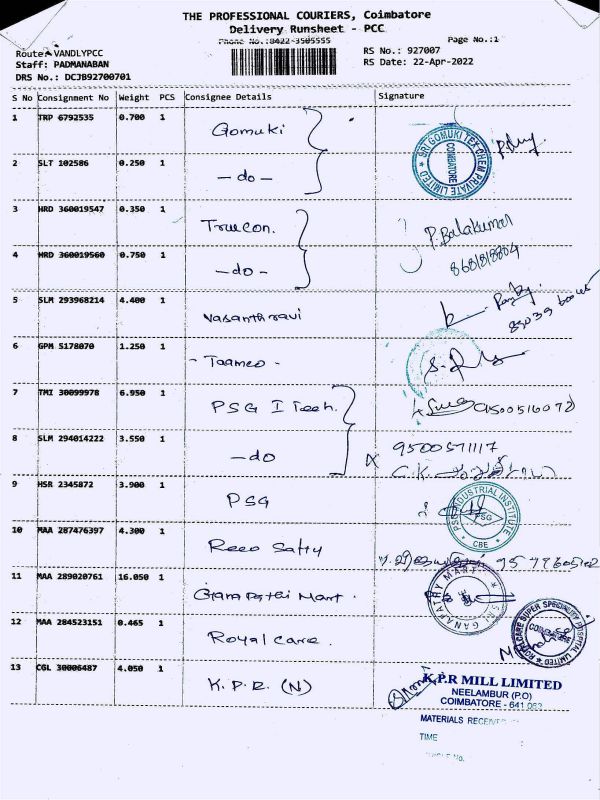 THE PROFESSIONAL COURIERS, Coimbatore
Delivery Runsheet - PCC
Phone No.:0422-3505555
Page No.:1
Route: VANDLYPCC
RS No.: 927007
Staff: PADMANABAN
RS Date: 22-Apr-2022
DRS No.: DCJB92700701
S No Consignment No Weight PCS Consignee Details Signature
1 TRP 6792535 0.700 1 Gomuki
SRI GOMUKI TEX CHEM PRIVATE LIMITED COIMBATORE
2 SLT 102586 0.250 1 -do-
3 HRD 360019547 0.350 1 Truecon. P. Balakumar
4 HRD 360019560 0.750 1 -do-
5 SLM 293968214 4.400 1 Vasanthravi
6 GPM 5178070 1.250 1 - Taameo -
7 TMI 30099978 6.950 1 PSG I Tech.
8 SLM 294014222 3.550 1 -do 9500571117
9 HSR 2345872 3.900 1 PSG
PSG INDUSTRIAL INSTITUTE PSG CBE
10 MAA 287476397 4.300 1
11 MAA 289020761 16.050 1 Ganapathi Mart.
SRI GANAPATHY MART
12 MAA 284523151 0.465 1 Royal care.
ROYALCARE SUPER SPECIALITY HOSPITAL LIMITED COIMBATORE
13 CGL 30006487 4.050 1 K.P.R. (N)
K.P.R MILL LIMITED
NEELAMBUR (P.O)
COIMBATORE - 641 062
MATERIALS RECEIVED
TIME